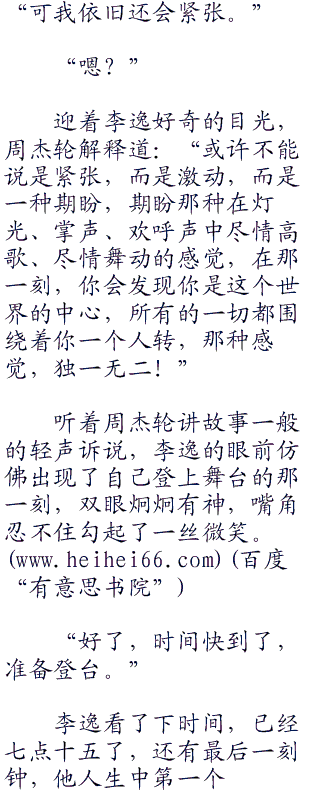 “可我依旧还会紧张。”
“嗯？”
迎着李逸好奇的目光，
周杰轮解释道：“或许不能
说是紧张，而是激动，而是
一种期盼，期盼那种在灯
光、掌声、欢呼声中尽情高
歌、尽情舞动的感觉，在那
一刻，你会发现你是这个世
界的中心，所有的一切都围
绕着你一个人转，那种感
觉，独一无二！”
听着周杰轮讲故事一般
的轻声诉说，李逸的眼前仿
佛出现了自己登上舞台的那
一刻，双眼炯炯有神，嘴角
忍不住勾起了一丝微笑。
(www.heihei66.com)(百度
“有意思书院”)
“好了，时间快到了，
准备登台。”
李逸看了下时间，已经
七点十五了，还有最后一刻
钟，他人生中第一个